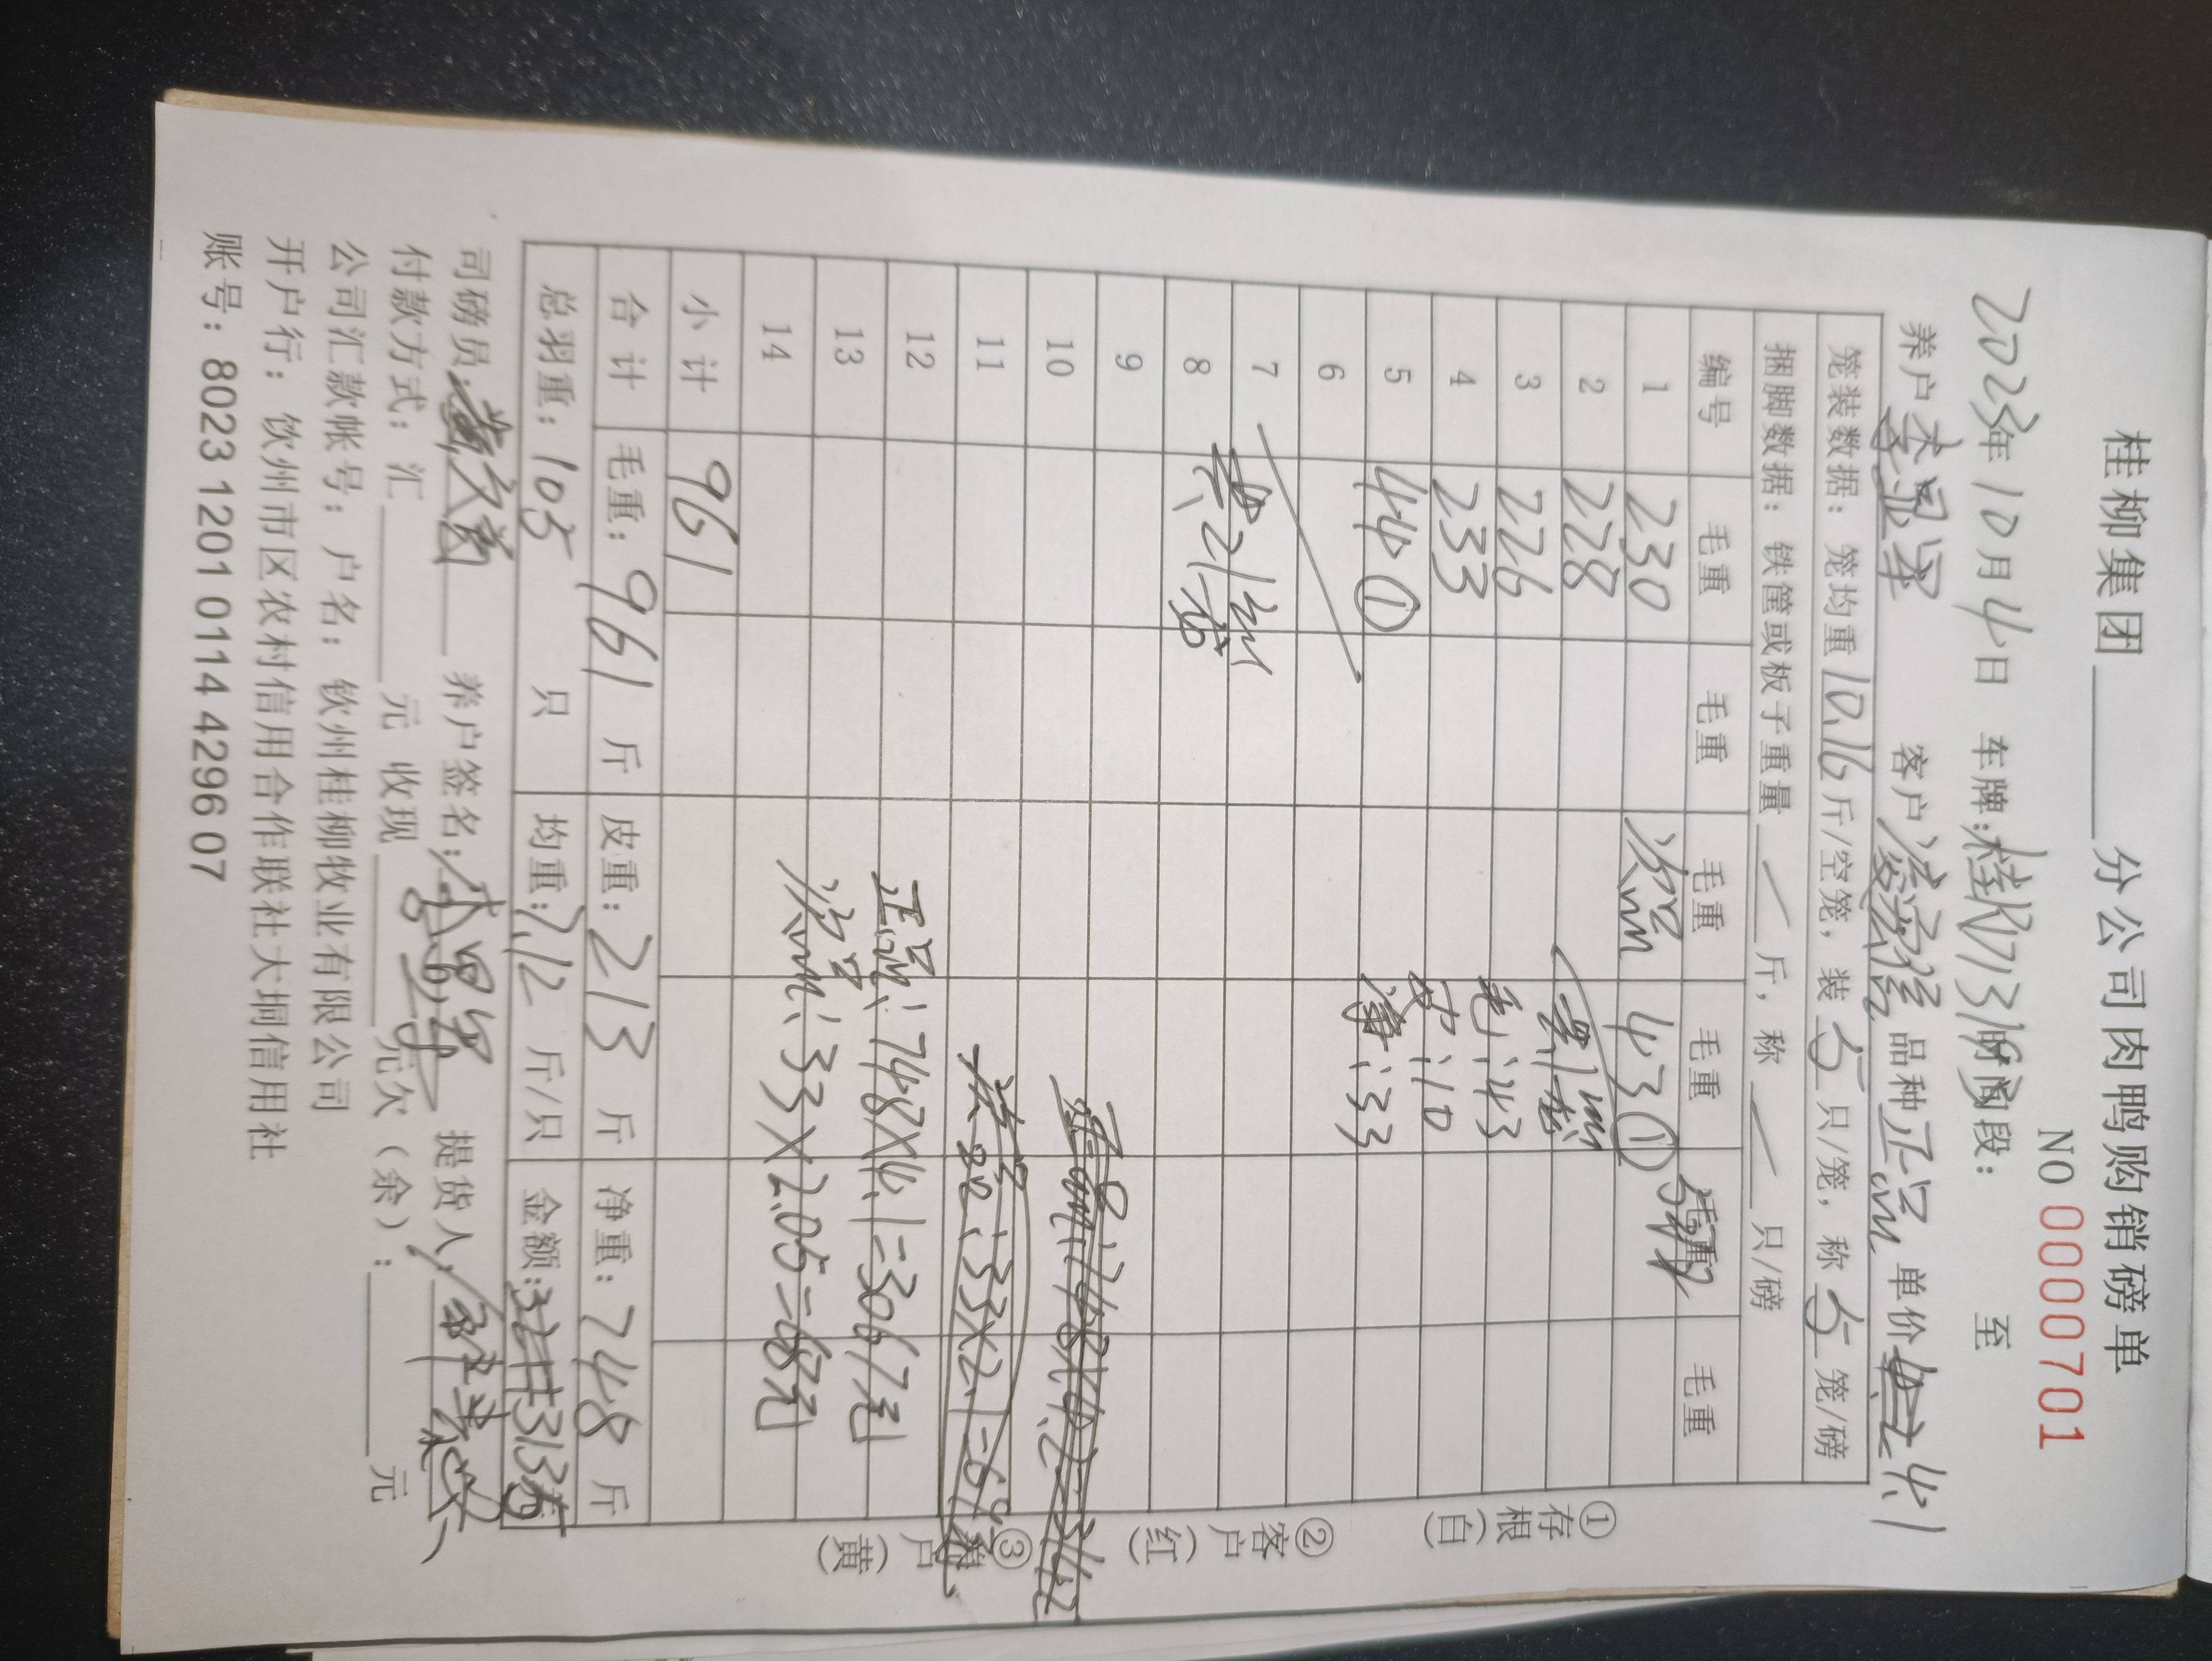 桂柳集团 分公司肉鸭购销磅单
NO 0000701
2023年10月4日 车牌:桂 段: 至
养户 李显军 客户 品种 正品 单价 4.1
笼装数据：笼均重 10.16 斤/空笼，装 5 只/笼，称 5 笼/磅
捆脚数据：铁筐或板子重量 / 斤，称 / 只/磅
编号 毛重 毛重 毛重 毛重 毛重 毛重
1 230 次品 43① 5只
2 228 共1笼
3 226 毛:43
4 233 皮:10
5 44① 净:33
6
7 共21笼
8
9
10
11 33×2.1=69
12 正品:748×4.1=3067元
13 次品:33×2.05=68元
14
小计 961
合计 毛重：961 斤 皮重：213 斤 净重：748 斤
总羽重：105 只 均重:7.12 斤/只 金额: 3135
司磅员: 养户签名: 李显军 提货人:
付款方式：汇 元 收现 元欠（余）: 元
公司汇款帐号：户名：钦州桂柳牧业有限公司
开户行：钦州市区农村信用合作联社大垌信用社
账号：8023 1201 0114 4296 07
①存根(白)
②客户(红)
③养户(黄)